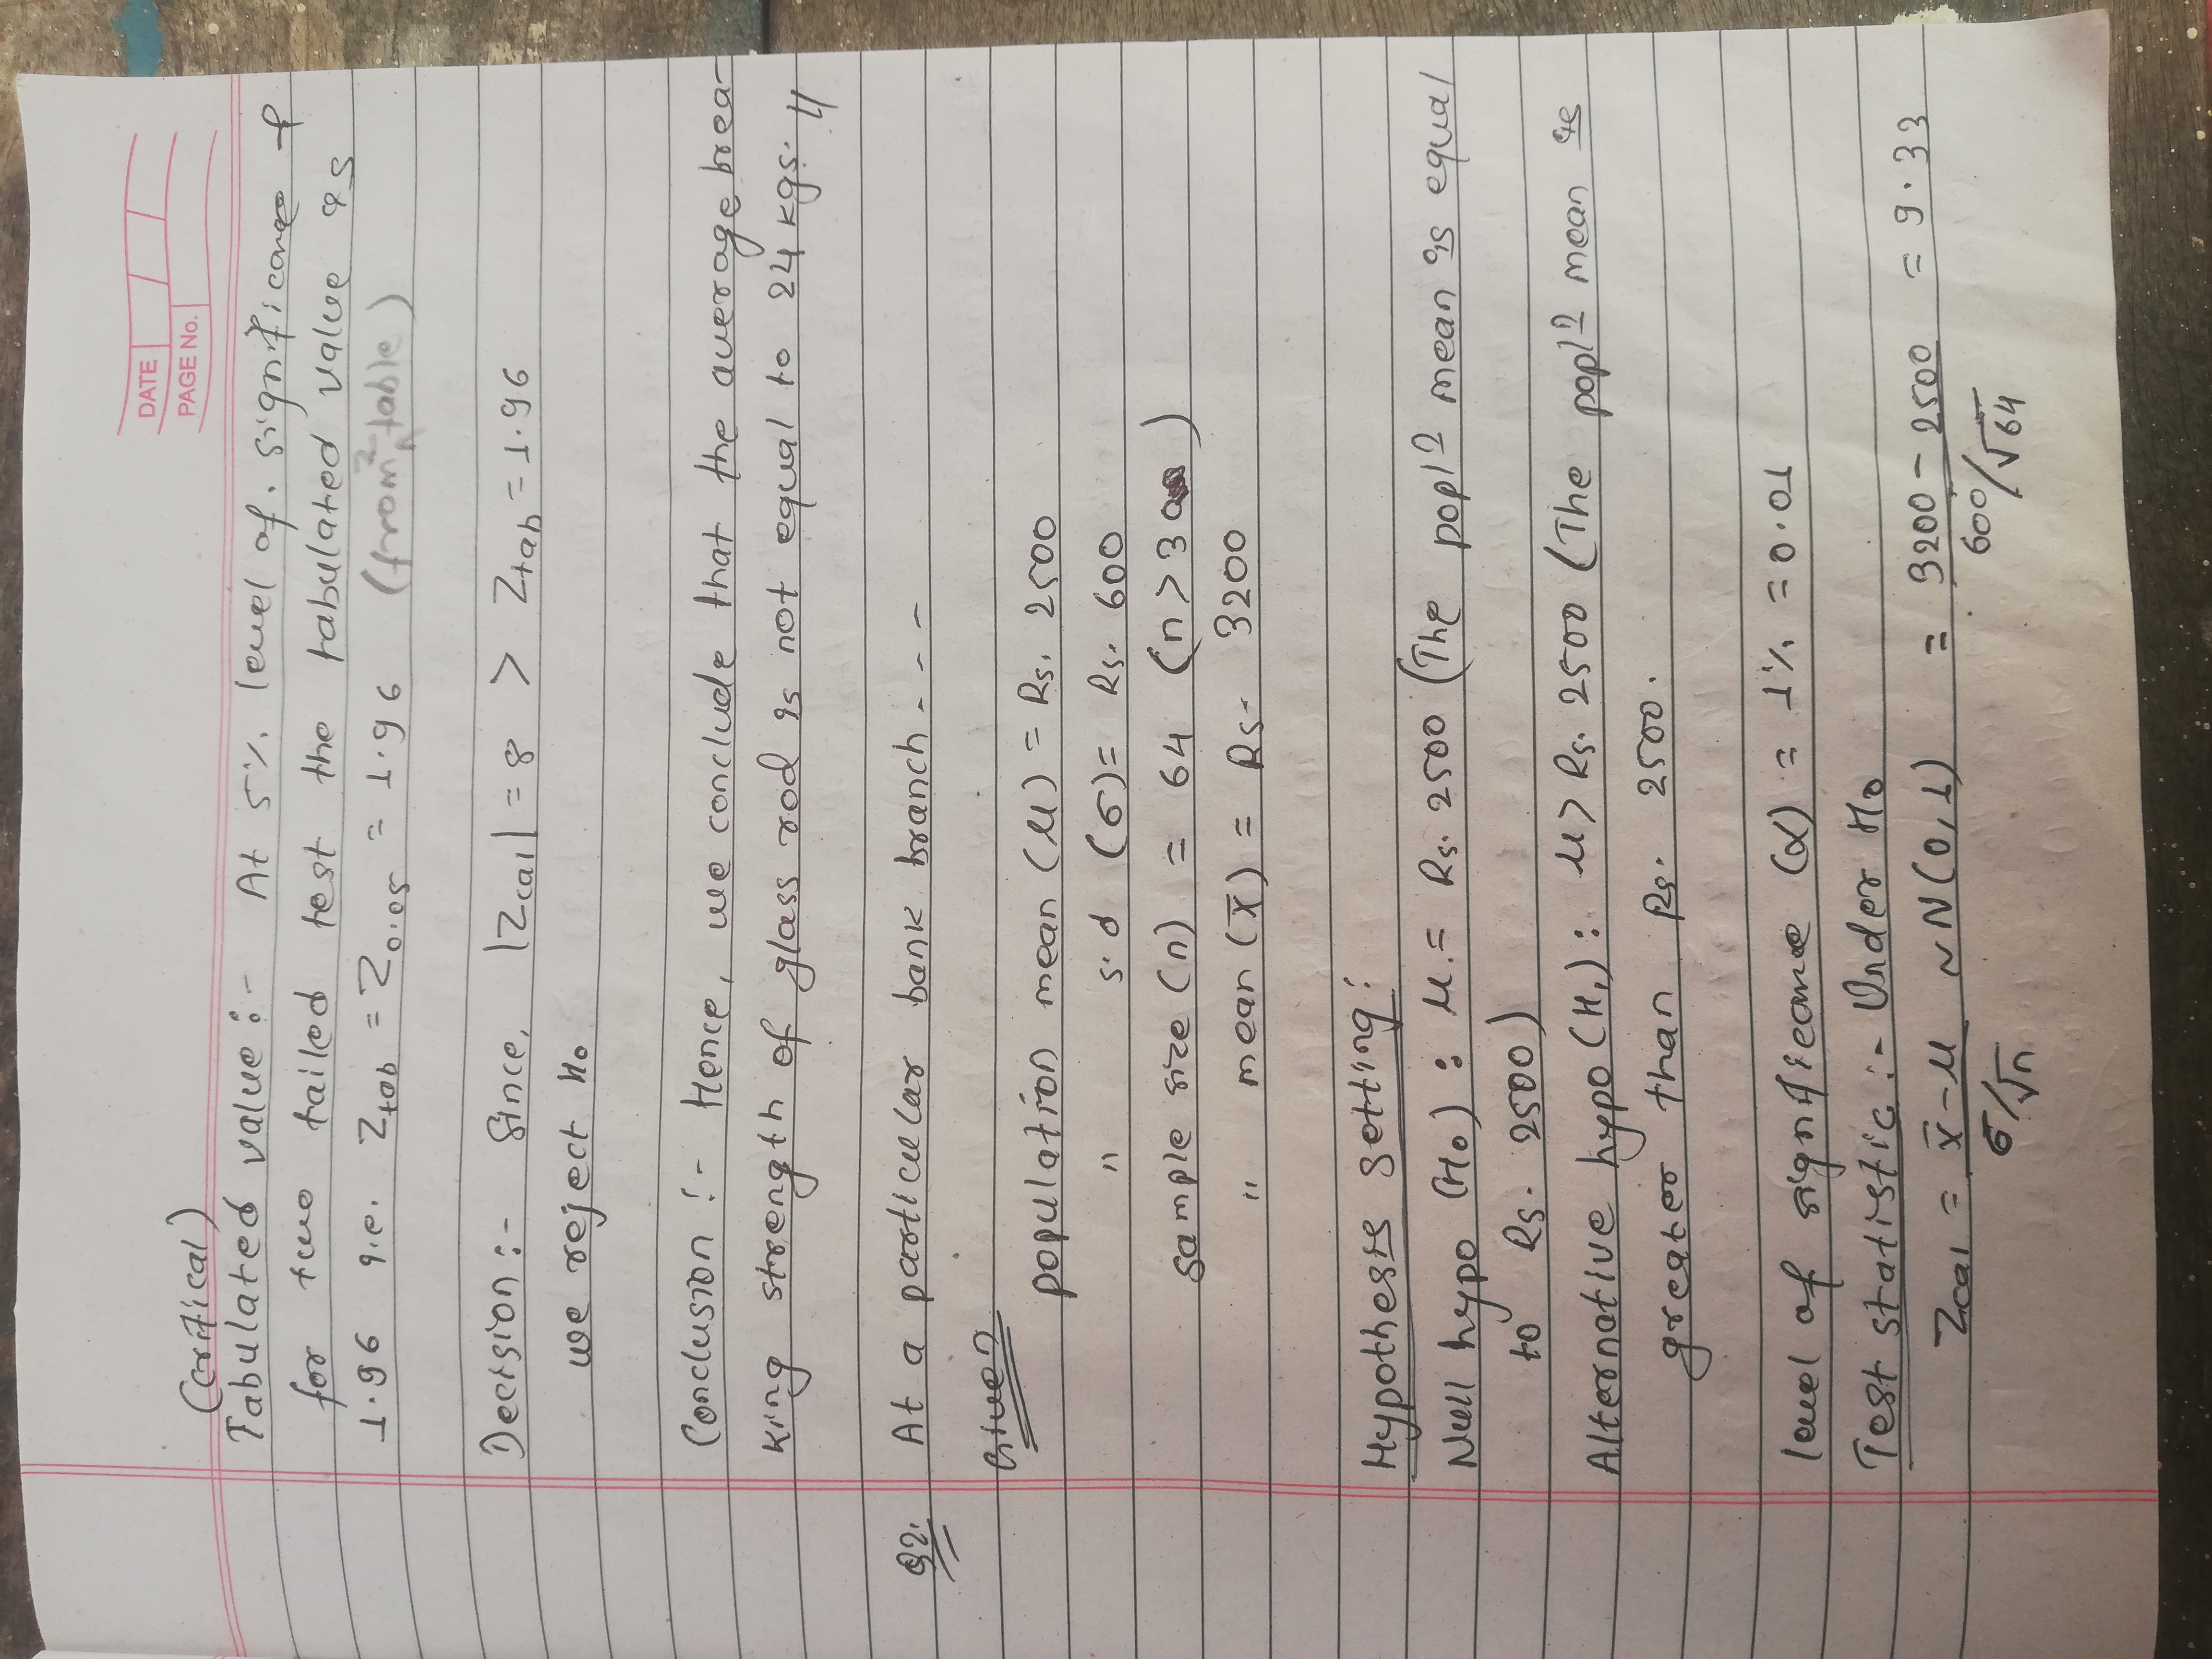 DATE
PAGE No.
(critical)
Tabulated value :- At 5% level of significance &
for two tailed test the tabulated value is
1.96 i.e. Ztab = Z0.05 = 1.96 (from Z table)
Decision :- Since, |Zcal| = 8 > Ztab = 1.96
we reject H0
Conclusion :- Hence, we conclude that the average brea-
king strength of glass rod is not equal to 24 kgs. //
Q2. At a particular bank branch - - -
Given
population mean (μ) = Rs. 2500
" s.d (σ) = Rs. 600
sample size (n) = 64 (n > 30)
" mean (x̄) = Rs. 3200
Hypothesis setting :
Null hypo (H0) : μ = Rs. 2500 (The popln mean is equal
to Rs. 2500)
Alternative hypo (H1) : μ > Rs. 2500 (The popln mean is
greater than Rs. 2500.
level of significance (α) = 1% = 0.01
Test statistic :- Under H0
Zcal = x̄ - μ / σ/√n ~ N(0, 1) = 3200 - 2500 / 600/√64 = 9.33